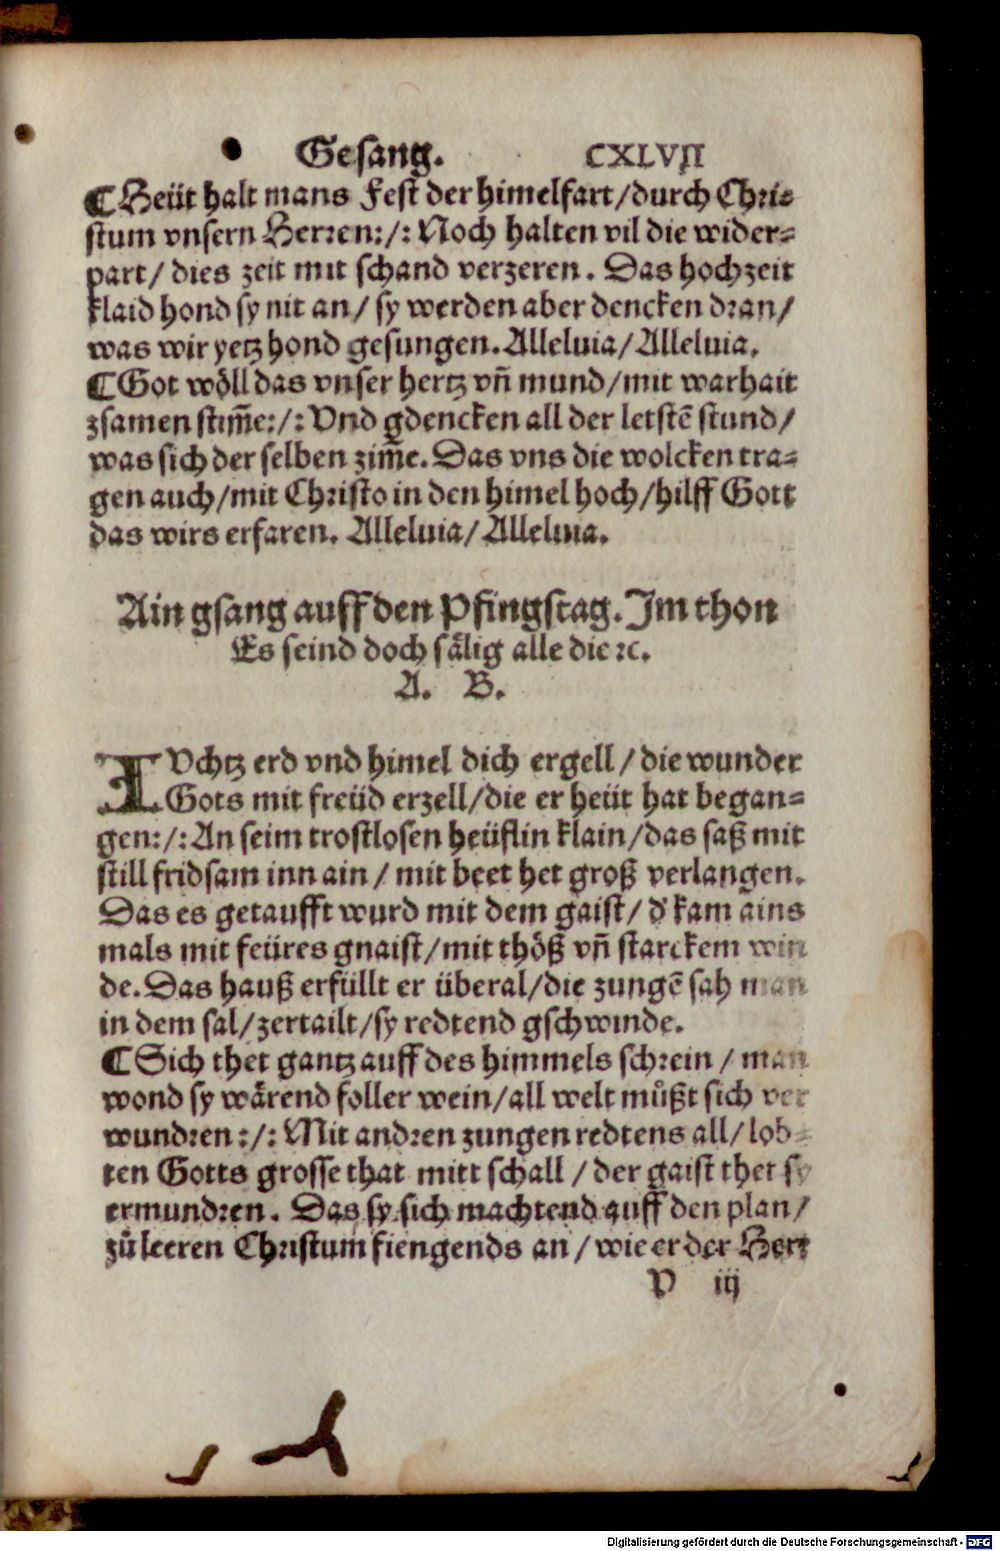 Gesang. CXLVII
¶ Heüt halt mans Fest der himelfart/durch Chri⸗
stum vnsern Herren:/: Noch halten vil die wider⸗
part/ dies zeit mit schand verzeren. Das hochzeit
klaid hond sy nit an/ sy werden aber dencken dran/
was wir yetz hond gesungen. Alleluia/ Alleluia.
¶ Got wöll das vnser hertz vñ mund/mit warhait
zsamen stim̃e:/: Vnd gdencken all der letstẽ stund/
was sich der selben zim̃e. Das vns die wolcken tra⸗
gen auch/mit Christo in den himel hoch/hilff Gott
das wirs erfaren. Alleluia/ Alleluia.
Ain gsang auff den Pfingstag. Im thon
Es seind doch sälig alle die ꝛc.
A. B.
IVchtz erd vnd himel dich ergell/ die wunder
Gots mit freüd erzell/die er heüt hat began⸗
gen:/: An seim trostlosen heüflin klain/das saß mit
still fridsam inn ain/ mit beet het groß verlangen.
Das es getaufft wurd mit dem gaist/ d' kam ains
mals mit feüres gnaist/mit thöß vñ starckem win
de. Das hauß erfüllt er überal/die zungẽ sah man
in dem sal/zertailt/sy redtend gschwinde.
¶ Sich thet gantz auff des himmels schrein/ man
wond sy wärend foller wein/all welt můßt sich ver
wundren:/: Mit andren zungen redtens all/ lob⸗
ten Gotts grosse that mitt schall/ der gaist thet sy
ermundren. Das sy sich machtend auff den plan/
zů leeren Christum fiengends an/ wie er der Herr
V iij
Digitalisierung gefördert durch die Deutsche Forschungsgemeinschaft - DFG